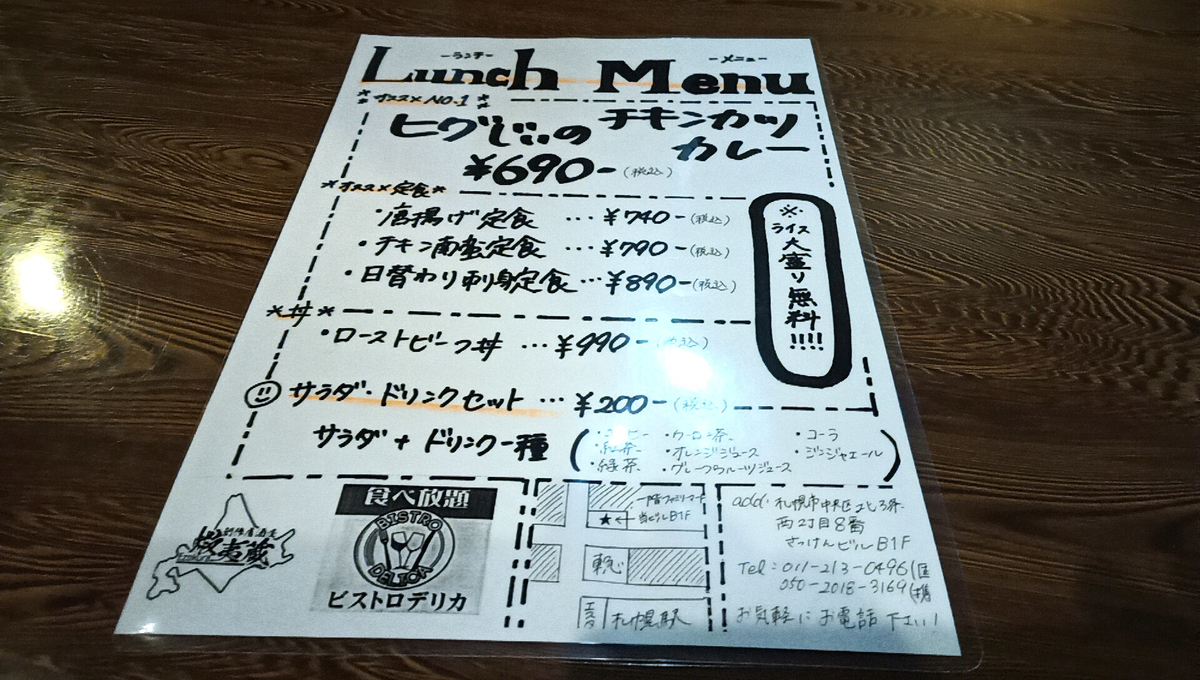 -ランチ- -メニュー-
Lunch Menu
*オススメNO.1*
ヒグじいの チキンカツ
カレー
¥690-(税込)
*オススメ定食*
・唐揚げ定食 …¥740-(税込)
・チキン南蛮定食 …¥790-(税込)
・日替わり刺身定食…¥890-(税込)
※ライス大盛り無料!!!!
*丼*
・ローストビーフ丼 …¥990-(税込)
サラダ・ドリンクセット …¥200-(税込)
サラダ+ドリンク一種
・コーヒー ・ウーロン茶 ・コーラ
・紅茶 ・オレンジジュース ・ジンジャエール
・緑茶 ・グレープフルーツジュース
食べ放題
BISTRO
DELICA
ビストロデリカ
一階ファミリーマート
★← 当ビルB1F
札幌駅
add: 札幌市中央区北3条
西2丁目8番
さっけんビルB1F
Tel:011-213-0496
050-2018-3169
お気軽にお電話下さい!